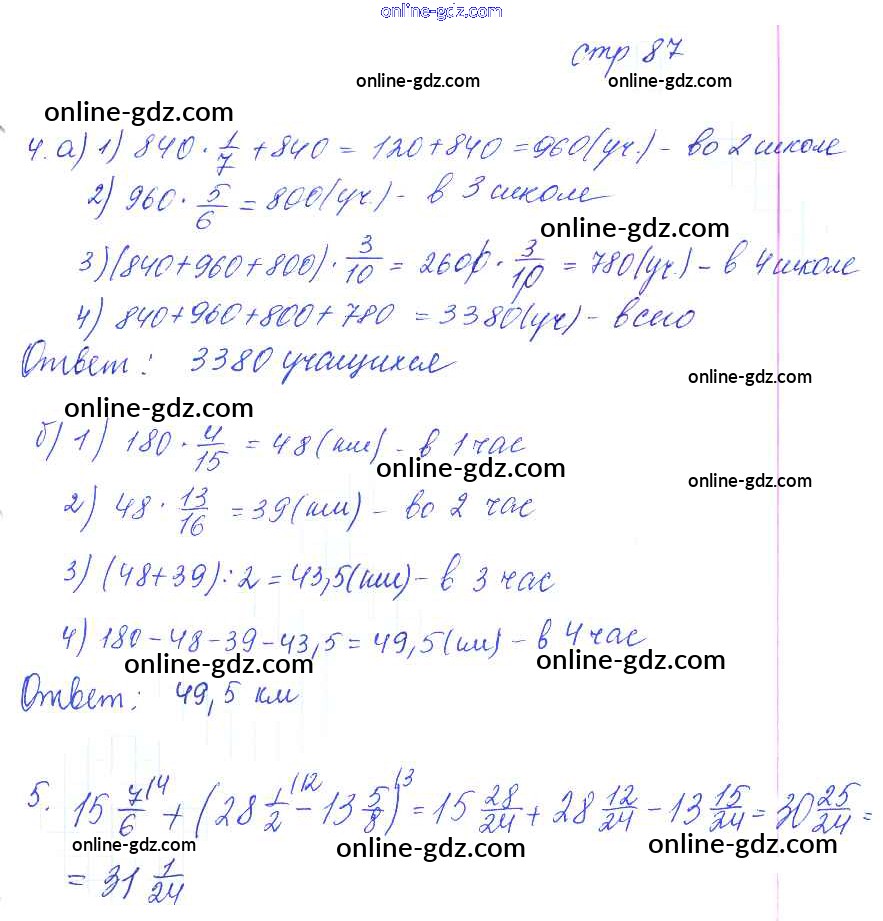 online-gdz.com
стр 87
online-gdz.com online-gdz.com
online-gdz.com
4. а) 1) 840 · 1/7 + 840 = 120 + 840 = 960 (уч.) - во 2 школе
2) 960 · 5/6 = 800 (уч.) - в 3 школе
online-gdz.com
3) (840 + 960 + 800) · 3/10 = 2600 · 3/10 = 780 (уч.) - в 4 школе
4) 840 + 960 + 800 + 780 = 3380 (уч) - всего
Ответ: 3380 учащихся
online-gdz.com
online-gdz.com
б) 1) 180 · 4/15 = 48 (км) - в 1 час
online-gdz.com
online-gdz.com
2) 48 · 13/16 = 39 (км) - во 2 час
3) (48 + 39) : 2 = 43,5 (км) - в 3 час
4) 180 - 48 - 39 - 43,5 = 49,5 (км) - в 4 час
online-gdz.com online-gdz.com
Ответ: 49,5 км
5. 15 7/6 (4 + (28 1/2 (12 - 13 5/8) (3 = 15 28/24 + 28 12/24 - 13 15/24 = 30 25/24 =
online-gdz.com online-gdz.com online-gdz.com
= 31 1/24